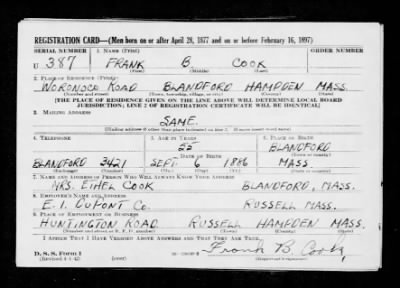 REGISTRATION CARD—(Men born on or after April 28, 1877 and on or before February 16, 1897)
SERIAL NUMBER 1. NAME (Print) ORDER NUMBER
U 387 FRANK B. COOK
(First) (Middle) (Last)
2. PLACE OF RESIDENCE (Print)
WORONOCO ROAD BLANDFORD HAMPDEN MASS.
(Number and street) (Town, township, village, or city) (County) (State)
[THE PLACE OF RESIDENCE GIVEN ON THE LINE ABOVE WILL DETERMINE LOCAL BOARD
JURISDICTION; LINE 2 OF REGISTRATION CERTIFICATE WILL BE IDENTICAL]
3. MAILING ADDRESS
SAME.
[Mailing address if other than place indicated on line 2. If same insert word same]
4. TELEPHONE 5. AGE IN YEARS 6. PLACE OF BIRTH
55 BLANDFORD
DATE OF BIRTH (Town or county)
BLANDFORD 3421 SEPT. 6 1886 MASS.
(Exchange) (Number) (Mo.) (Day) (Yr.) (State or country)
7. NAME AND ADDRESS OF PERSON WHO WILL ALWAYS KNOW YOUR ADDRESS
MRS. ETHEL COOK BLANDFORD, MASS.
8. EMPLOYER'S NAME AND ADDRESS
E. I. DUPONT CO. RUSSELL MASS.
9. PLACE OF EMPLOYMENT OR BUSINESS
HUNTINGTON ROAD RUSSELL HAMPDEN MASS.
(Number and street or R. F. D. number) (Town) (County) (State)
I AFFIRM THAT I HAVE VERIFIED ABOVE ANSWERS AND THAT THEY ARE TRUE.
D. S. S. Form 1 Frank B Cook
(Revised 4-1-42) (over) (Registrant's signature)